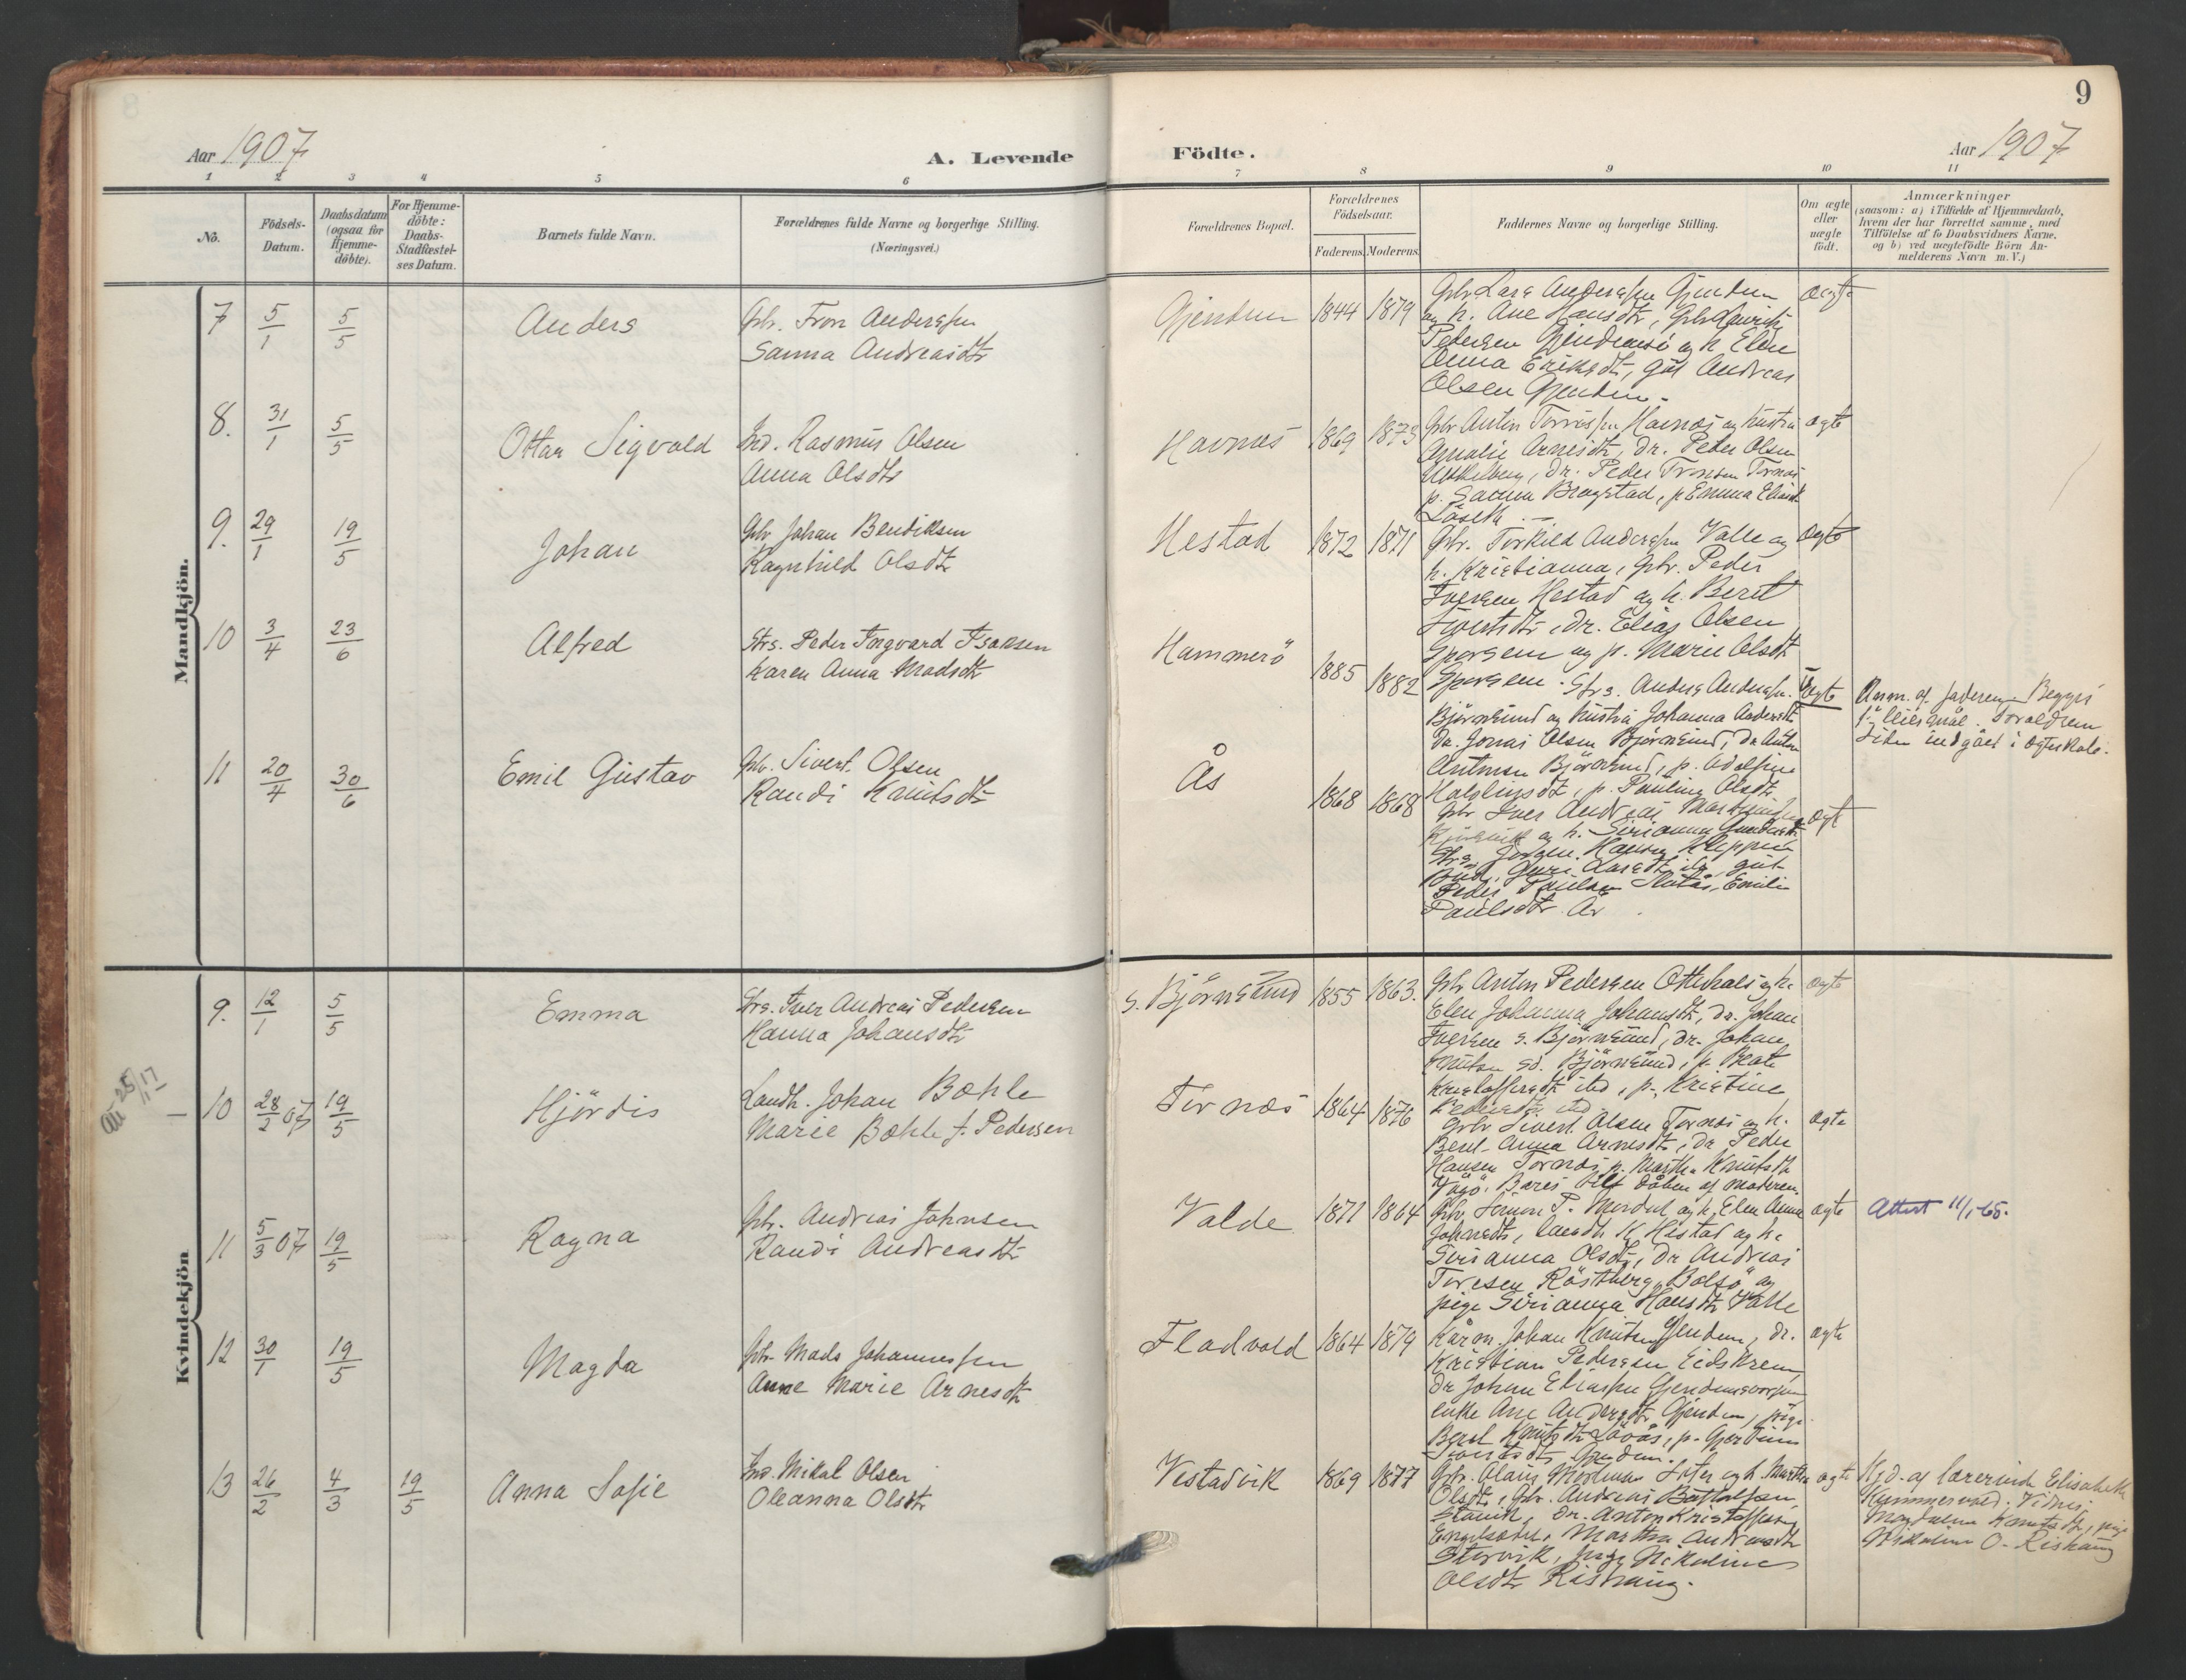 9
Aar 1907
A. Levende
Födte.
Aar 1907
1 2 3 4 5 6 7 8 9 10 11
No.
Födsels-
Datum.
Daabsdatum
(ogsaa for
Hjemme-
döbte).
For Hjemme-
döbte:
Daabs-
Stadfæstel-
ses Datum.
Barnets fulde Navn.
Forældrenes fulde Navne og borgerlige Stilling.
(Næringsvei.)
Forældrenes Bopæl.
Forældrenes
Födselsaar.
Faderens. Moderens.
Faddernes Navne og borgerlige Stilling.
Om ægte
eller
uægte
födt.
Anmærkninger
(saasom: a) i Tilfælde af Hjemmedaab,
hvem der har forrettet samme, med
Tilföielse af to Daabsvidners Navne,
og b) ved uægtefödte Börn An-
melderens Navn m. V.)
Mandkjön.
7 5/1 5/5 Anders
Gbr. Tron Anderssen
Sanna Andreasdtr
Gjendem 1844 1879
Gbr Lars Anderssen Gjendem
og h. Ane Hansdtr, Gbr Lauritz
Pedersen Gjendemsö og h Elen
Anna Eriksdtr, gut Andreas
Olsen Gjendem.
Ægte
8. 31/1 5/5 Ottar Sigvald
Ind. Rasmus Olsen
Anna Olsdtr
Havnæs 1869 1873
Gbr Anton Havnæs og hustru
Amalie Arnesdtr, Dr. Peder Olsen
Dr. Peder Tronsen Tornæs
p. Sanna Bragstad, p Emma
ægte
9. 29/1 19/5 Johan
Gbr Johan Bendiksen
Ragnhild Olsdtr
Hestad 1872 1871
Gbr. Torkild Anderssen Valle og
h. Kristianna, Gbr. Peder
Iversen Hestad og h. Berit
Sivertsdtr, Dr. Elias Olsen
og p. Marie Olsdtr
ægte
10 3/4 23/6 Alfred
Strs. Peder Ingvard Isaksen
Karen Anna Madsdtr
Hammerö 1885 1882
Strs. Anders Anderssen
Björnsund og hustru Johanna Andersdtr
Dr. Jonas Olsen Björnsund, Dr Anton
Antonsen Björnsund, p. Adolfine
p. Pauline Olsdtr
Uægte
Anm. af faderen. Begges
1ste leiermål. Forældrene
siden indgået i ægteskab.
11 20/4 30/6 Emil Gustav
Gbr. Sivert Olsen
Randi Knutsdtr
Ås 1868 1868
Gbr Iver Andreas
og h. Sirianna
Strs. Jörgen Hansen
Bud, Guri Larsdtr ib, gut
Peder Paulsen Emilie
Paulsdtr Ås
ægte
Kvindekjön
9. 12/1 5/5 Emma
Strs. Iver Andreas Pedersen
Hanna Johansdtr
s. Björnsund 1855 1863.
Gbr Anton Pedersen Otterhals og h.
Elen Johanna Johansdtr, Dr. Johan
Iversen s. Björnsund, Dr. Johan
Knutsen sd. Björnsund, p. Beate
Kristoffersdtr ibd, p. Kristine
ibd
ægte
Att 25/11 17
– 10 28/2 07 19/5 Hjördis
Landh. Johan Bøhle
Marie Bøhle f. Pedersen
Tornæs 1864 1876
Gbr Sivert Olsen Tornæs og h.
Berit Anna Arnesdtr, Dr Peder
Hansen Tornæs, p. Martha Knutsdtr
Vågö. Bares til dåben af moderen.
ægte
11 5/3 07 19/5 Ragna
Gbr. Andreas Johnsen
Randi Andreasdtr
Valde 1871 1864
Gbr Simon P. Mordal og h. Elen Anna
Johnsdtr, Hestad og h.
Sirianna Olsdtr, Dr Andreas
Toresen Röstberg, Bolsö og
pige Sirianna Hansdtr Valle
ægte
Attest 11/1-65.
12 30/1 19/5 Magda
Gbr. Mads Johannessen
Anne Marie Arnesdtr
Fladvold 1864 1879
Kårm. Johan Knutsen Gjendem, Dr.
Kristian Pedersen Eidskrem,
Dr Johan Eliassen
enke Ane Andersdtr Gjendem, pige
Berit Knutsdtr Lövås, p. Gjertine
Sivertsdtr Gjendem.
ægte
13 26/2 4/3 19/5 Anna Sofie
Ind. Mikal Olsen
Oleanna Olsdtr
Vestadvik 1869 1877
Gbr. Olaus og h. Martha
Olsdtr, Gbr. Andreas
Stavik, Dr. Anton Kristoffersen
Martha Andreasdtr
Storvik, pige Nikoline
Olsdtr Riskaug.
ægte
Hjd. af lærerinde Elisabeth
Kummervold. Vidner:
Magdalena Knutsdtr, pige
Nikoline O. Riskaug